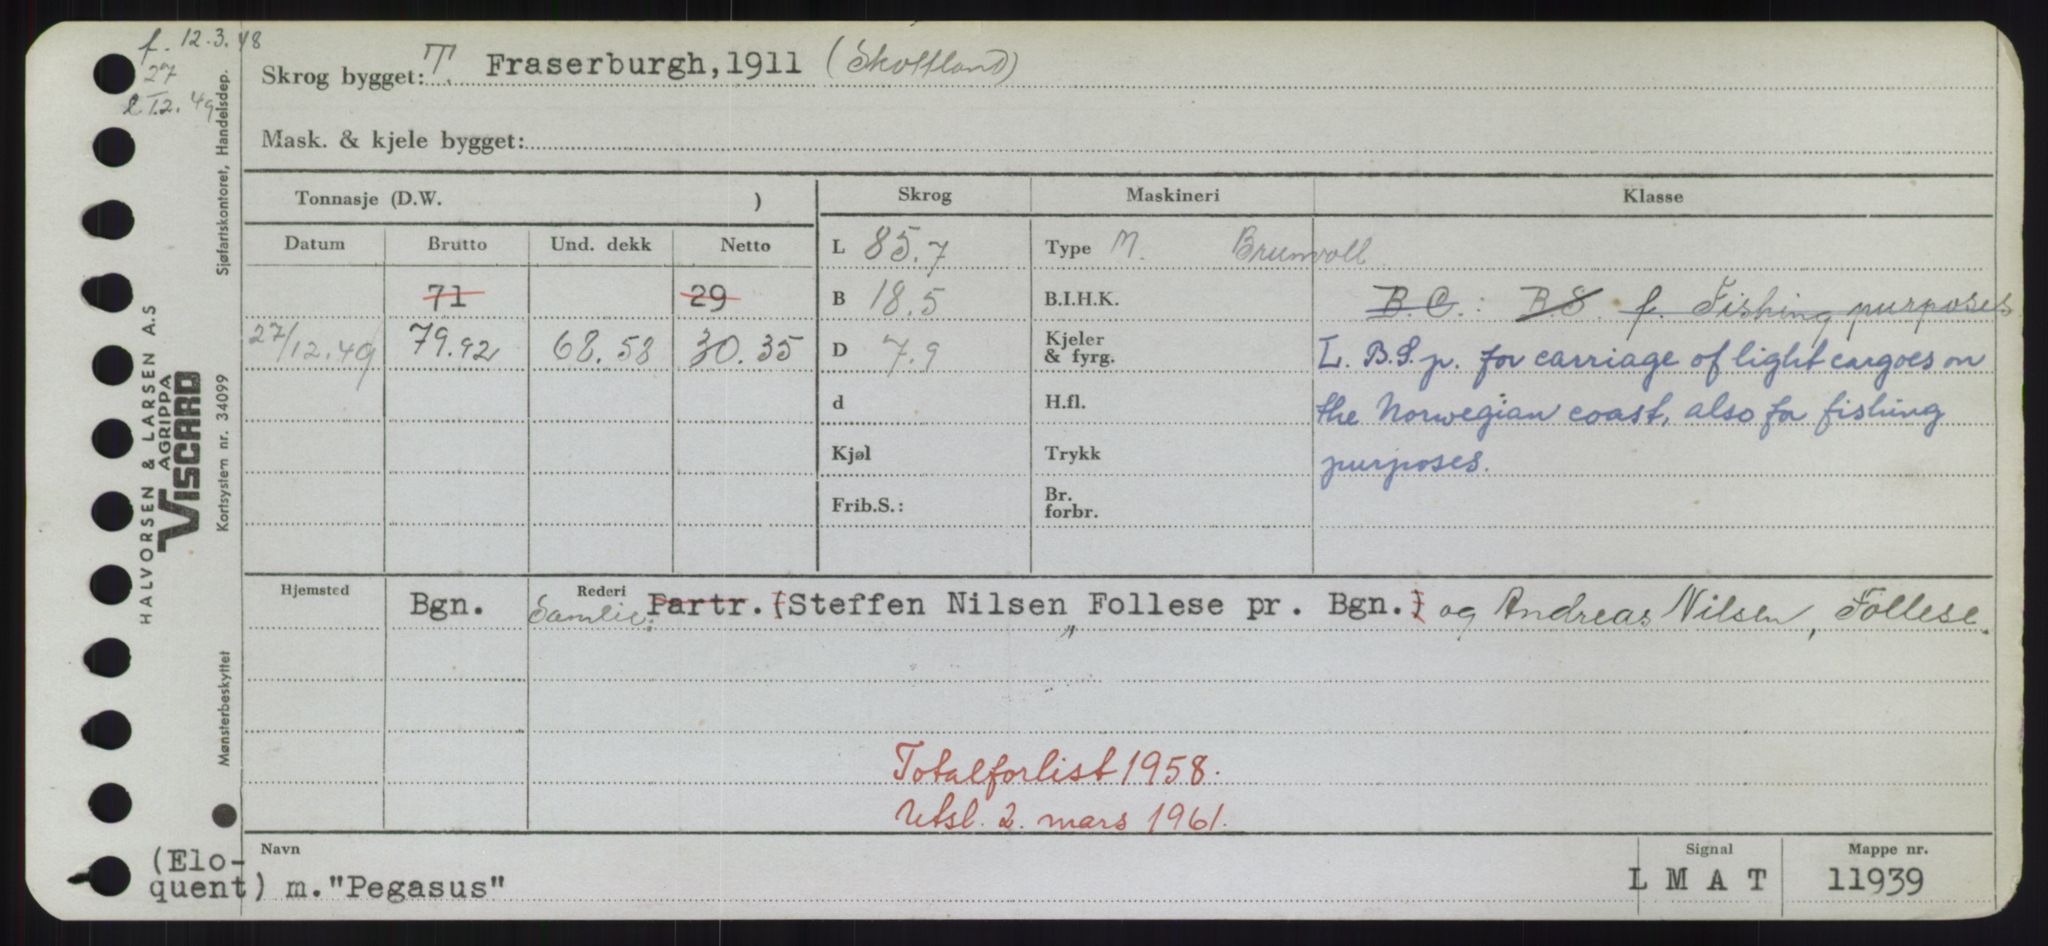 f. 12.3.48
27
12.49
Skrog bygget: T. Fraserburgh, 1911 (Skottland)
Mask. & kjele bygget:
Tonnasje (D.W. )
Skrog
Maskineri
Klasse
Datum Brutto Und. dekk Netto
L 85.7
Type M. Brunvoll
71 29
B 18.5
B.I.H.K.
B.C.: BS. f. Fishing purposes
27/12.49 79.92 68.58 30.35
D 7.9
Kjeler
& fyrg.
L. B.S.p. for carriage of light cargoes on
d
H.fl.
the Norwegian coast, also for fishing
Kjøl
Trykk
purposes.
Frib.S.:
Br.
forbr.
Hjemsted
Rederi
Bgn. Samlie: Partr. (Steffen Nilsen Follese pr. Bgn.) og Andreas Nilsen, Follese.
"
Totalforlist 1958.
Utsl. 2. mars 1961.
Navn
Signal
Mappe nr.
(Elo-
quent) m."Pegasus"
L M A T
11939
HALVORSEN & LARSEN A.S
AGRIPPA
VISCARD
Sjøfartskontoret, Handelsdep.
Kortsystem nr. 34099
Mønsterbeskyttet